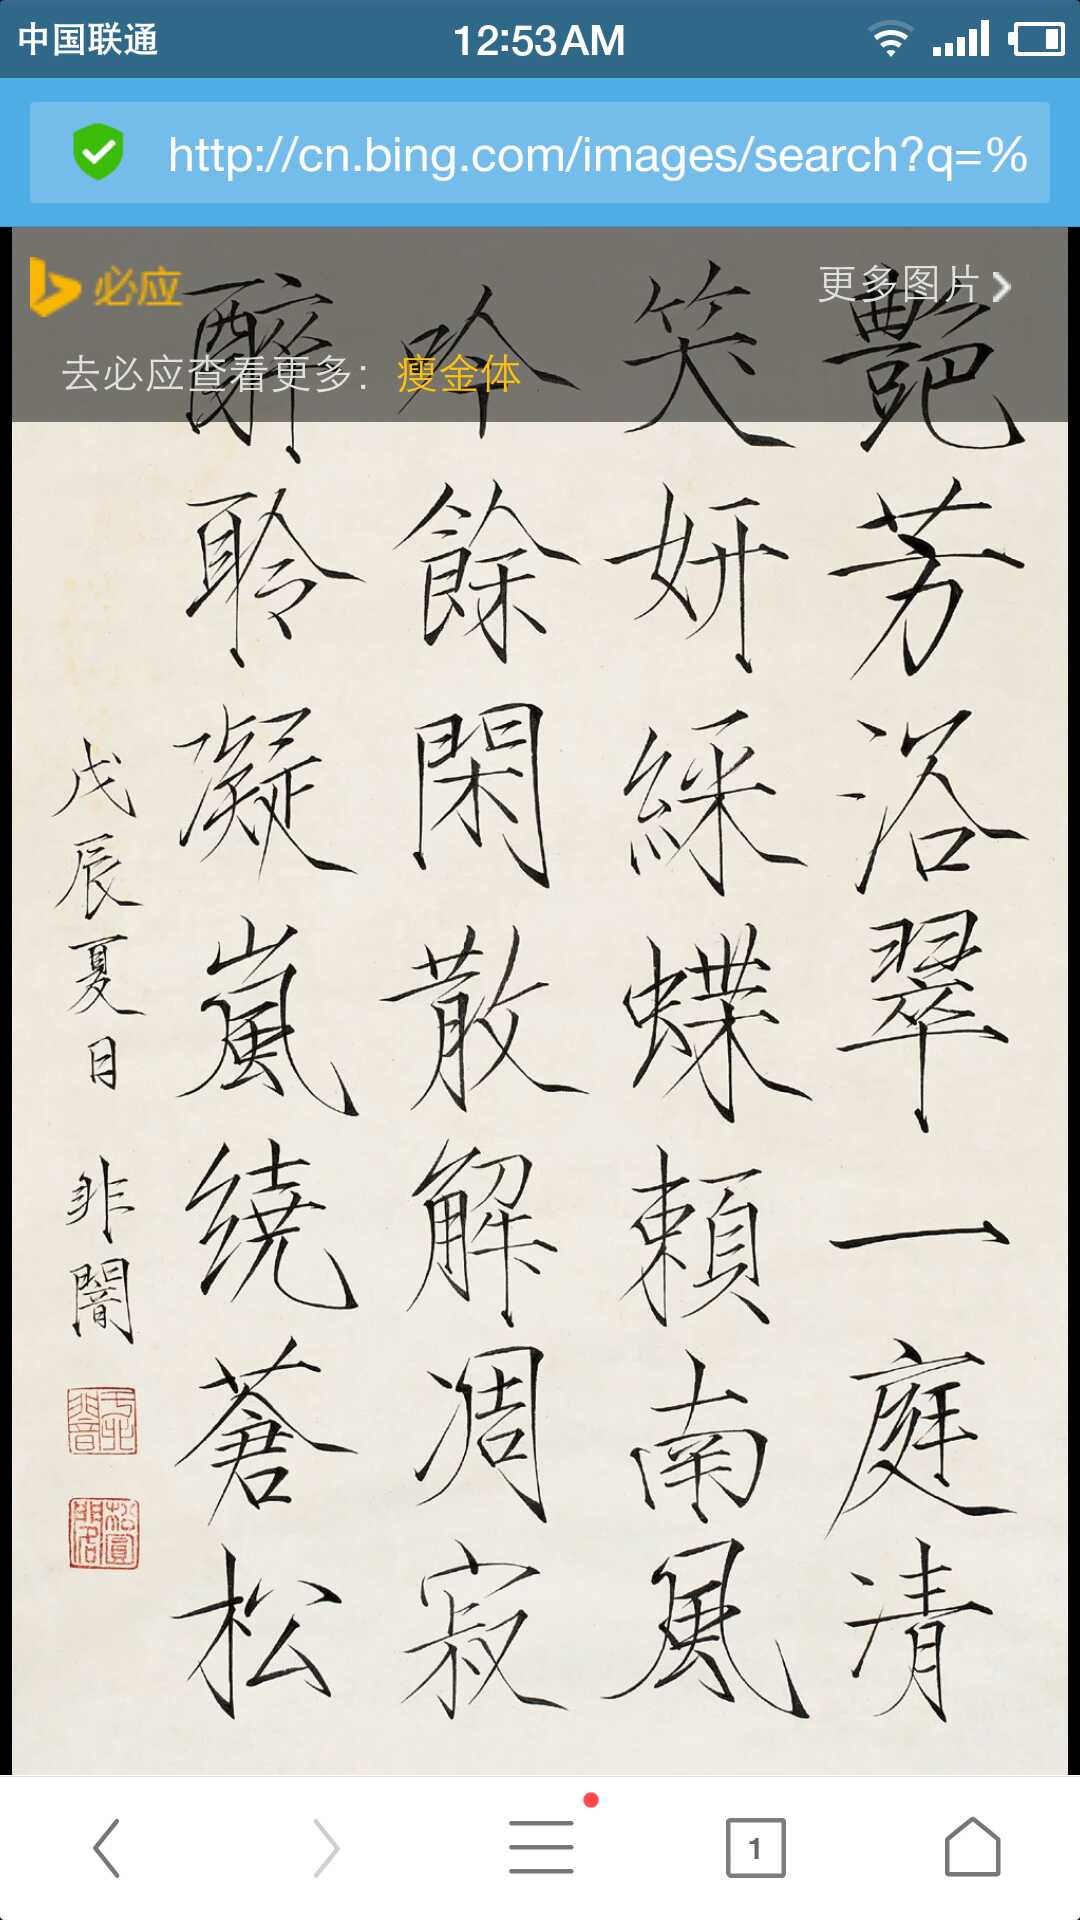 中国联通
12:53AM
http://cn.bing.com/images/search?q=%
必应
更多图片
去必应查看更多：瘦金体
艷芳浴翠一庭清
笑妍綵蝶賴南風
吟餘閑散解凋寂
醉聆凝嵐繞蒼松
戊辰夏日 非闇
1